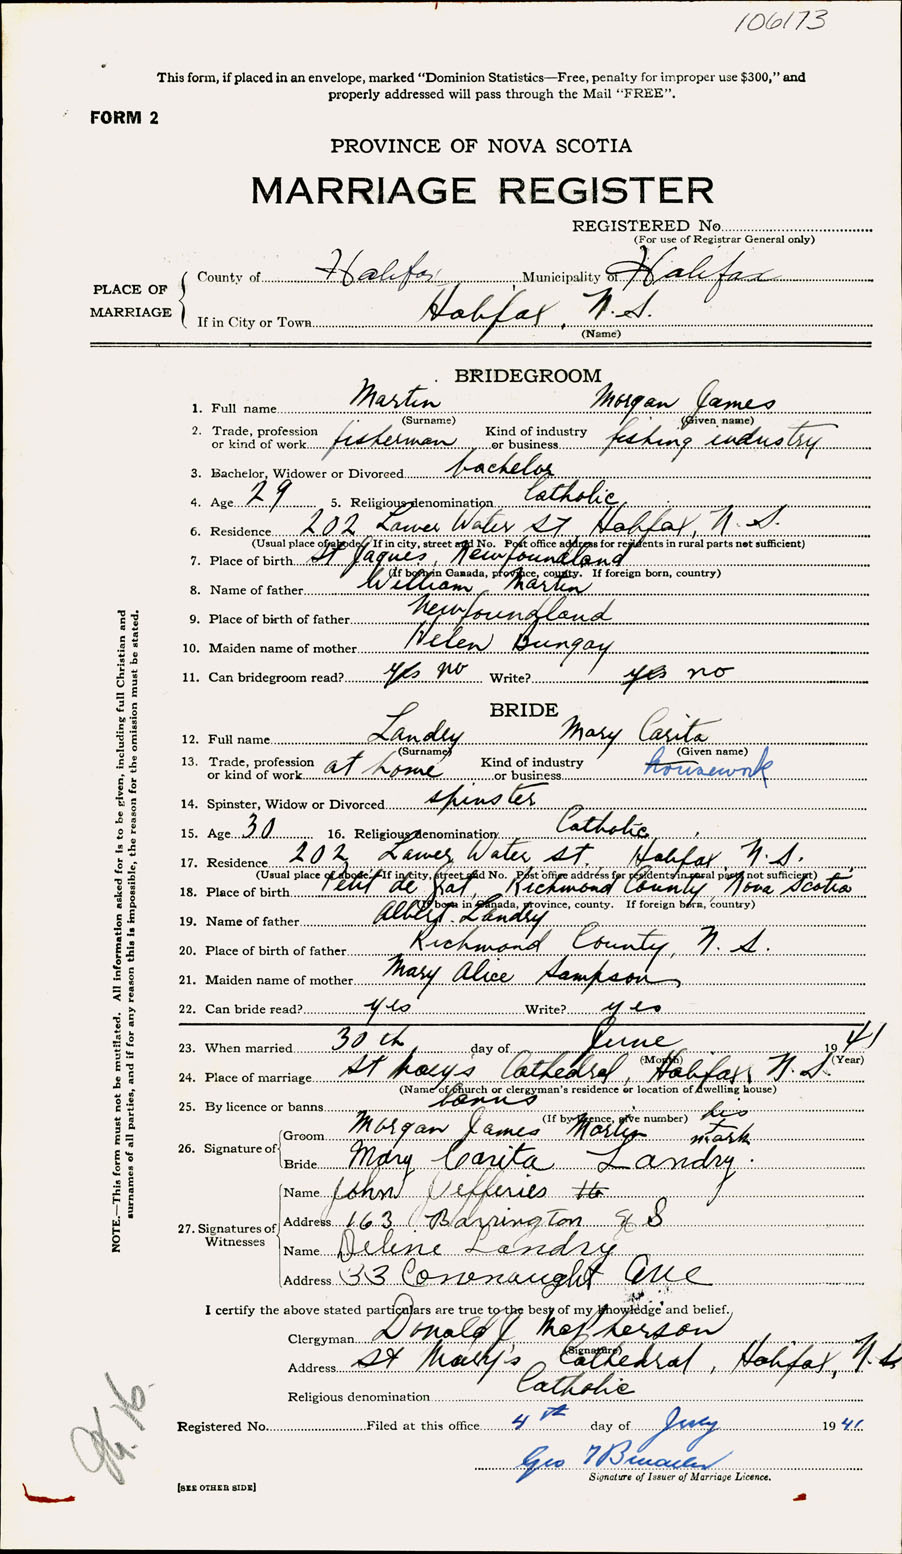 106173
This form, if placed in an envelope, marked "Dominion Statistics—Free, penalty for improper use $300," and
properly addressed will pass through the Mail "FREE".
FORM 2
PROVINCE OF NOVA SCOTIA
MARRIAGE REGISTER
REGISTERED No.
(For use of Registrar General only)
PLACE OF MARRIAGE
County of Halifax Municipality of Halifax
If in City or Town Halifax, N.S.
(Name)
BRIDEGROOM
1. Full name Martin Morgan James
(Surname) (Given name)
2. Trade, profession or kind of work fisherman Kind of industry or business fishing industry
3. Bachelor, Widower or Divorced bachelor
4. Age 29 5. Religious denomination Catholic
6. Residence 202 Lower Water St Halifax, N.S.
(Usual place of abode. If in city, street and No. Post office address for residents in rural parts not sufficient)
7. Place of birth St Jaques, Newfoundland
(If born in Canada, province, county. If foreign born, country)
8. Name of father William Martin
9. Place of birth of father Newfoundland
10. Maiden name of mother Helen Bungay
11. Can bridegroom read? yes no Write? yes no
BRIDE
12. Full name Landry Mary Carita
(Surname) (Given name)
13. Trade, profession or kind of work at home Kind of industry or business housework
14. Spinster, Widow or Divorced spinster
15. Age 30 16. Religious denomination Catholic
17. Residence 202 Lower Water St. Halifax, N.S.
(Usual place of abode. If in city, street and No. Post office address for residents in rural parts not sufficient)
18. Place of birth Petit de Grat, Richmond County Nova Scotia
(If born in Canada, province, county. If foreign born, country)
19. Name of father Albert Landry
20. Place of birth of father Richmond County, N.S.
21. Maiden name of mother Mary Alice Sampson
22. Can bride read? yes Write? yes
23. When married 30th day of June 1941
(Month) (Year)
24. Place of marriage St Mary's Cathedral, Halifax, N.S.
(Name of church or clergyman's residence or location of dwelling house)
25. By licence or banns banns
(If by licence, give number)
26. Signature of
Groom Morgan James Martin his mark
Bride Mary Carita Landry.
27. Signatures of Witnesses
Name John Jefferies
Address 163 Barrington St
Name Deline Landry
Address 33 Conenaught Ave
I certify the above stated particulars are true to the best of my knowledge and belief.
Clergyman Donald J McPherson
(Signature)
Address St Mary's Cathedral, Halifax, N.S.
Religious denomination Catholic
Registered No. Filed at this office 4th day of July 1941
Geo
Signature of Issuer of Marriage Licence.
[SEE OTHER SIDE]
NOTE.—This form must not be mutilated. All information asked for is to be given, including full Christian and
surnames of all parties, and if for any reason this is impossible, the reason for the omission must be stated.